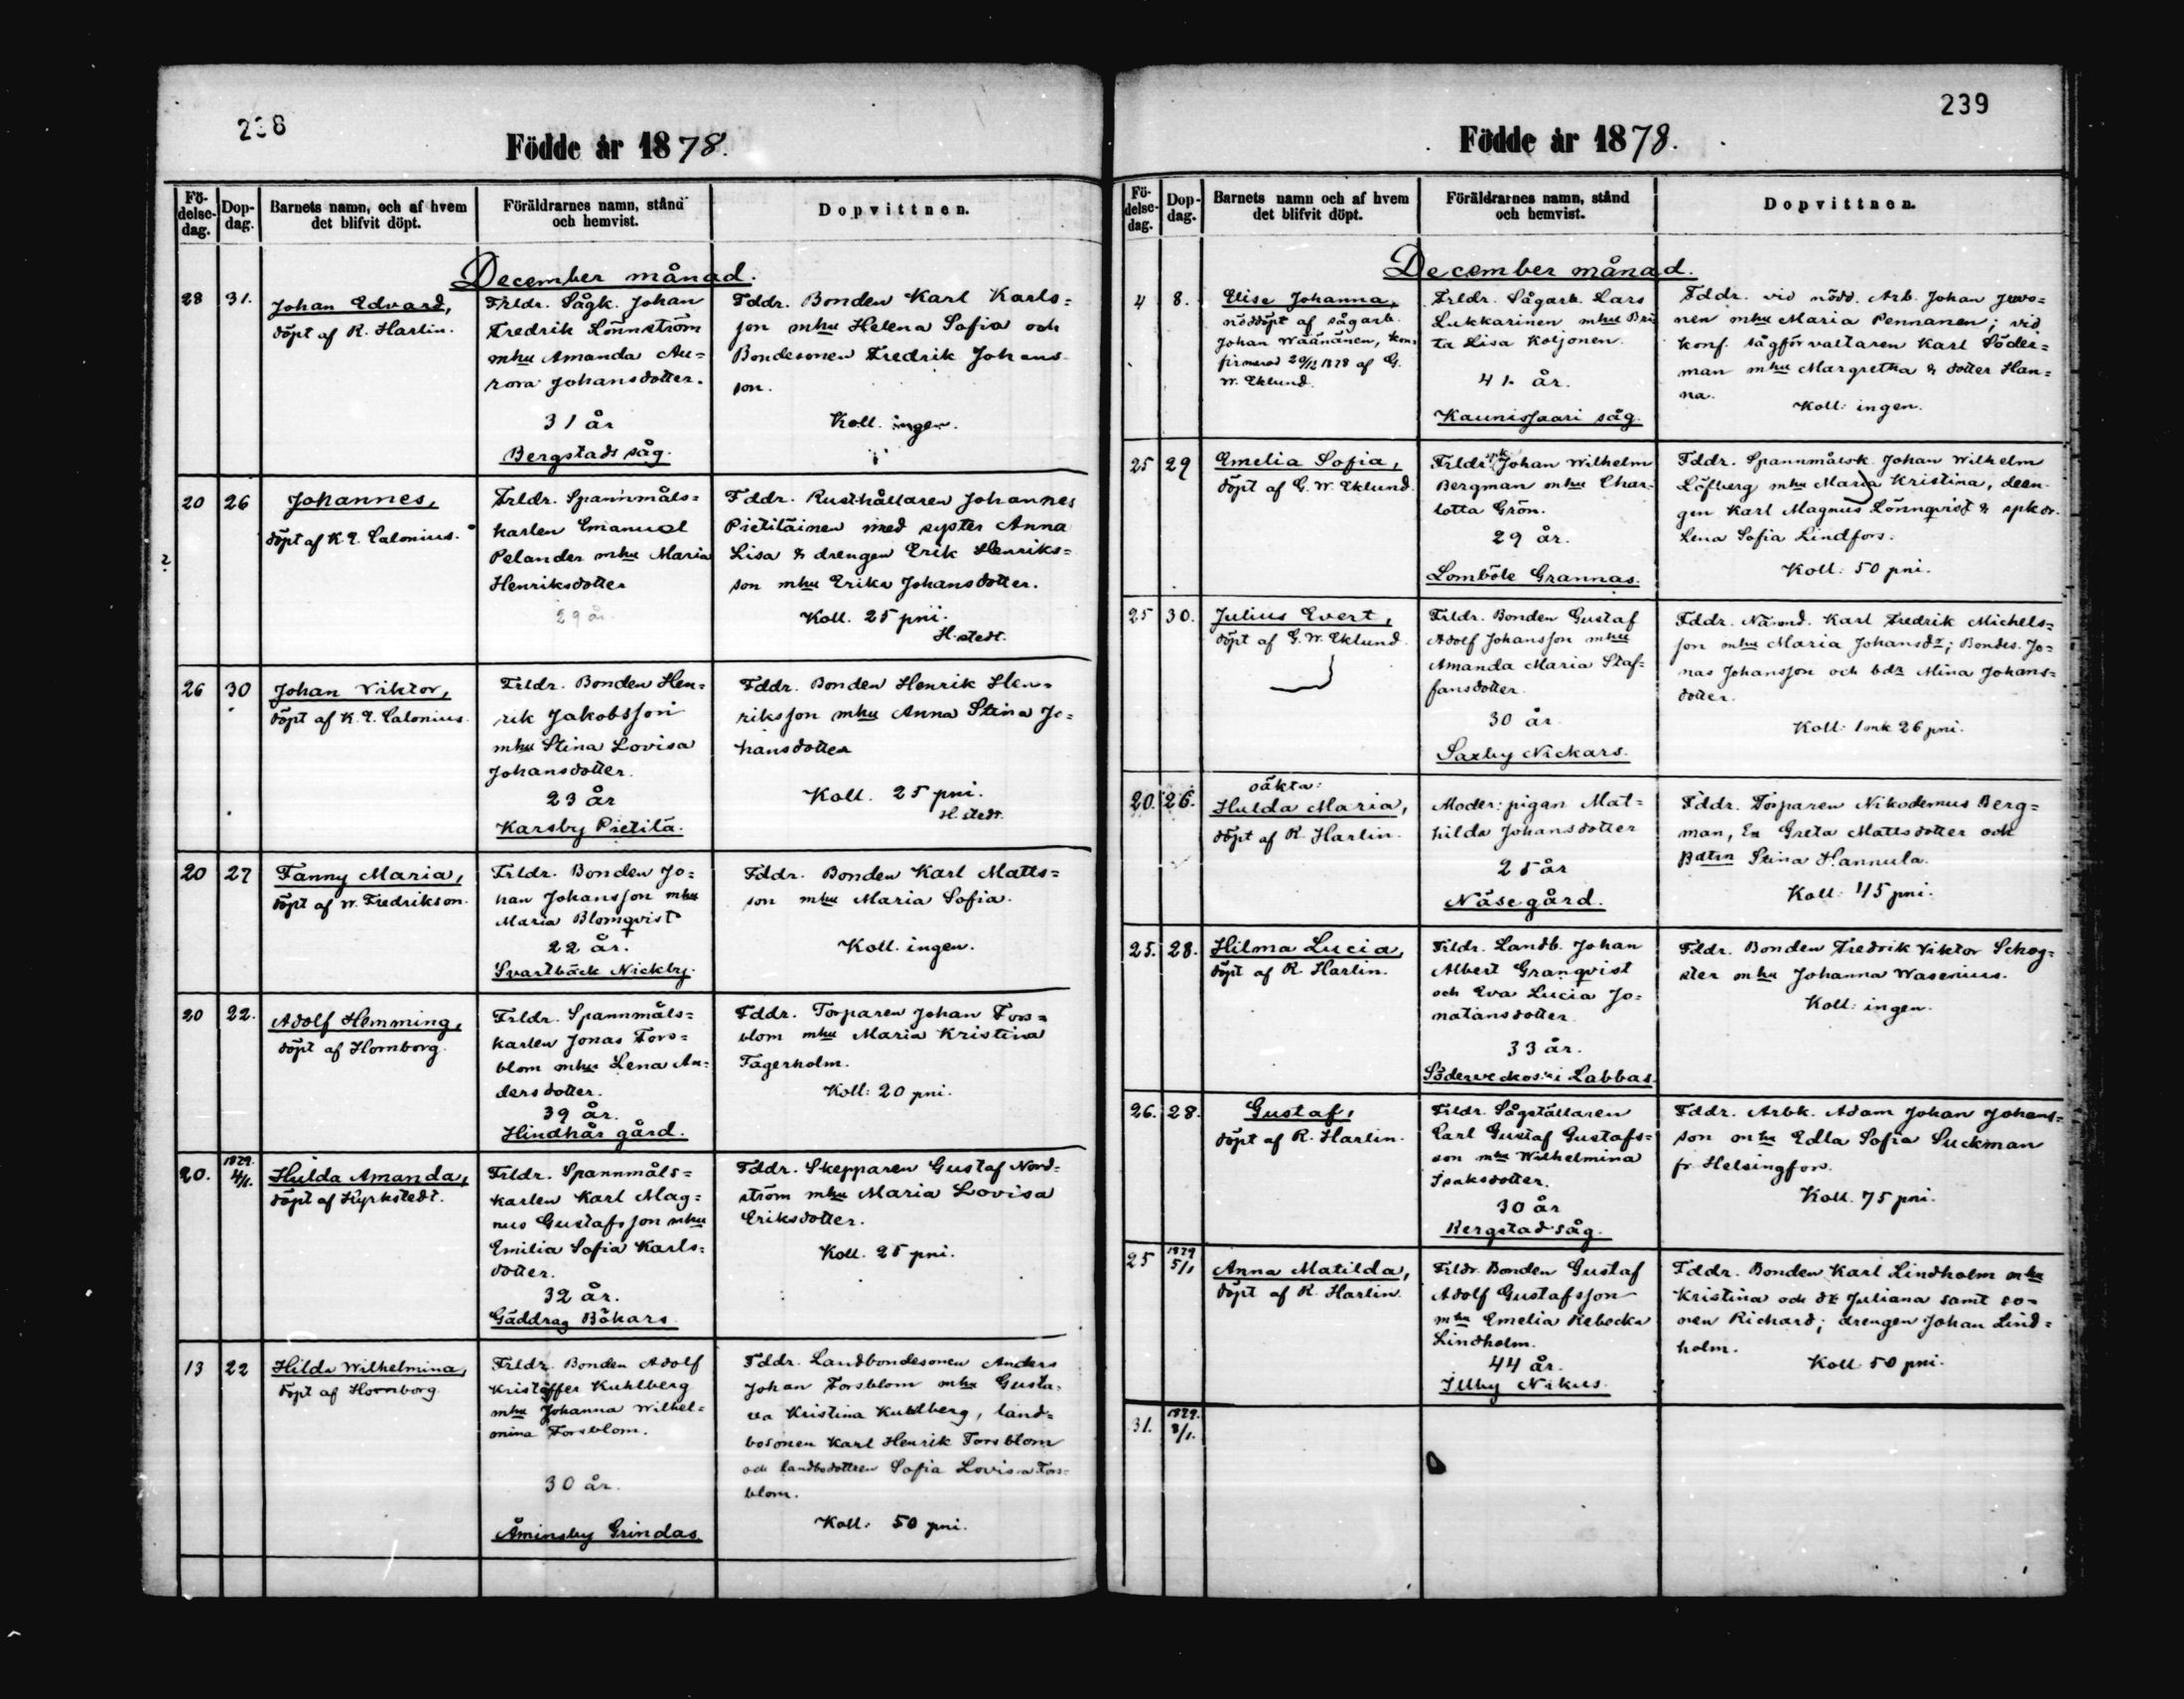 238
Födde år 1878.
Fö-
delse-
dag.
Dop-
dag.
Barnets namn, och af hvem
det blifvit döpt.
Föräldrarnes namn, stånd
och hemvist.
Dopvittnen.
December månad.
28
31.
Johan Edvard,
döpt af R. Harlin.
Frldr. Sågk. Johan
Fredrik Lönnström
mhu Amanda Au=
rora Johansdotter.
31 år
Bergstads såg.
Fddr. Bonden Karl Karls=
son mhu Helena Sofia och
Bondesonen Fredrik Johans
son.
Koll. ingen.
20
26
Johannes,
döpt af K. E. Calonius.
Frldr. Spannmåls=
karlen Emanuel
Pelander mhu Maria
Henriksdotter
29 år
Fddr. Rusthållaren Johannes
Pietiläinen med syster Anna
Lisa & drengen Erik Henriks=
son mhu Erika Johansdotter.
Koll. 25 pni.
H. stedt.
?
26
30
Johan Viktor,
döpt af K. E. Calonius.
Frldr. Bonden Hen=
rik Jakobsson
mhu Stina Lovisa
Johansdotter.
23 år
Karsby Pietilä.
Fddr. Bonden Henrik Hen=
riksson mhu Anna Stina Jo=
hansdotter
Koll. 25 pni.
H. stedt.
20
27
Fanny Maria,
döpt af W. Fredrikson.
Frldr. Bonden Jo=
han Johansson mhu
Maria Blomqvist
22 år.
Svartbäck Nickby.
Fddr. Bonden Karl Matts=
son mhu Maria Sofia.
Koll. ingen.
20
22.
Adolf Hemming,
döpt af Hornborg.
Frldr. Spannmåls=
karlen Jonas Fors=
blom mhu Lena An=
dersdotter.
39 år.
Hindhår gård.
Fddr. Torparen Johan Fors=
blom mhu Maria Kristina
Fagerholm.
Koll: 20 pni.
20.
1879.
4/1.
Hulda Amanda,
döpt af Kyrkstedt.
Frldr. Spannmåls=
karlen Karl Mag=
nus Gustafsson mhu
Emilia Sofia Karls=
dotter.
32 år.
Gäddrag Bökars.
Fddr. Skepparen Gustaf Nord=
ström mhu Maria Lovisa
Eriksdotter.
Koll. 25 pni.
13
22
Hilda Wilhelmina,
döpt af Hornborg.
Frldr. Bonden Adolf
Kristoffer Kuhlberg
mhu Johanna Wilhel=
mina Forsblom.
30 år.
Åminsby Grindas.
Fddr. Landbondesonen Anders
Johan Forsblom mhu Gusta=
va Kristina Kuhlberg, land=
bosonen Karl Henrik Forsblom
och landbodottren Sofia Lovisa Fors=
blom.
Koll: 50 pni.
239
Födde år 1878.
Fö-
delse-
dag.
Dop-
dag.
Barnets namn och af hvem
det blifvit döpt.
Föräldrarnes namn, stånd
och hemvist.
Dopvittnen.
December månad.
4
8.
Elise Johanna,
nöddöpt af sågarb.
Johan Wäänänen, kon=
firmerad 29/12 1878 af G.
W. Eklund.
Frldr. Sågarb. Lars
Lukkarinen mhu Bri
ta Lisa Koljonen.
41 år.
Kaunissaari såg.
Fddr. vid nödd. Arb. Johan
nen mhu Maria Pennanen; vid
konf. sågförvaltaren Karl Söder=
man mhu Margretha & dotter Han=
na.
Koll: ingen.
25
29
Emelia Sofia,
döpt af G. W. Eklund.
Frldr. spk Johan Wilhelm
Bergman mhu Char=
lotta Grön.
29 år.
Lomböle Grannas.
Fddr. Spannmålsk. Johan Wilhelm
Löfberg mhu Maria Kristina, dren-
gen Karl Magnus Lönnqvist & spkdr.
Lena Sofia Lindfors.
Koll: 50 pni.
25
30.
Julius Evert,
döpt af G. W. Eklund.
Frldr. Bonden Gustaf
Adolf Johansson mhu
Amanda Maria Staf=
fansdotter.
30 år.
Saxby Nickars.
Fddr. Nämnd. Karl Fredrik Michels=
son mhu Maria Johansdr; Bondes. Jo=
nas Johansson och bdr Mina Johans=
dotter.
Koll: 1 mk 26 pni.
20.
26.
oäkta:
Hulda Maria,
döpt af R. Harlin.
Moder: pigan Mat=
hilda Johansdotter
25 år
Näse gård.
Fddr. Torparen Nikodemus Berg=
man, En Greta Mattsdotter och
Bdtrn Stina Hannula.
Koll: 45 pni.
25.
28.
Hilma Lucia,
döpt af R. Harlin.
Frldr. Landb. Johan
Albert Granqvist
och Eva Lucia Jo=
natansdotter.
33 år.
Söderveckoski Labbas.
Fddr. Bonden Fredrik Viktor Schog=
ster mhu Johanna Wasenius.
Koll: ingen.
26.
28.
Gustaf,
döpt af R. Harlin.
Frldr. Sågställaren
Carl Gustaf Gustafs=
son mhu Wilhelmina
Isaksdotter.
30 år
Bergstad såg.
Fddr. Arbk. Adam Johan Johans=
son mhu Edla Sofia Suckman
fr. Helsingfors.
Koll. 75 pni.
25
1879
5/1
Anna Matilda,
döpt af R. Harlin.
Frldr. Bonden Gustaf
Adolf Gustafsson
mhu Emelia Rebecka
Lindholm.
44 år.
Illby Nikus.
Fddr. Bonden Karl Lindholm mhu
Kristina och dr Juliana samt so=
nen Richard; drengen Johan Lind=
holm.
Koll 50 pni.
31.
1879.